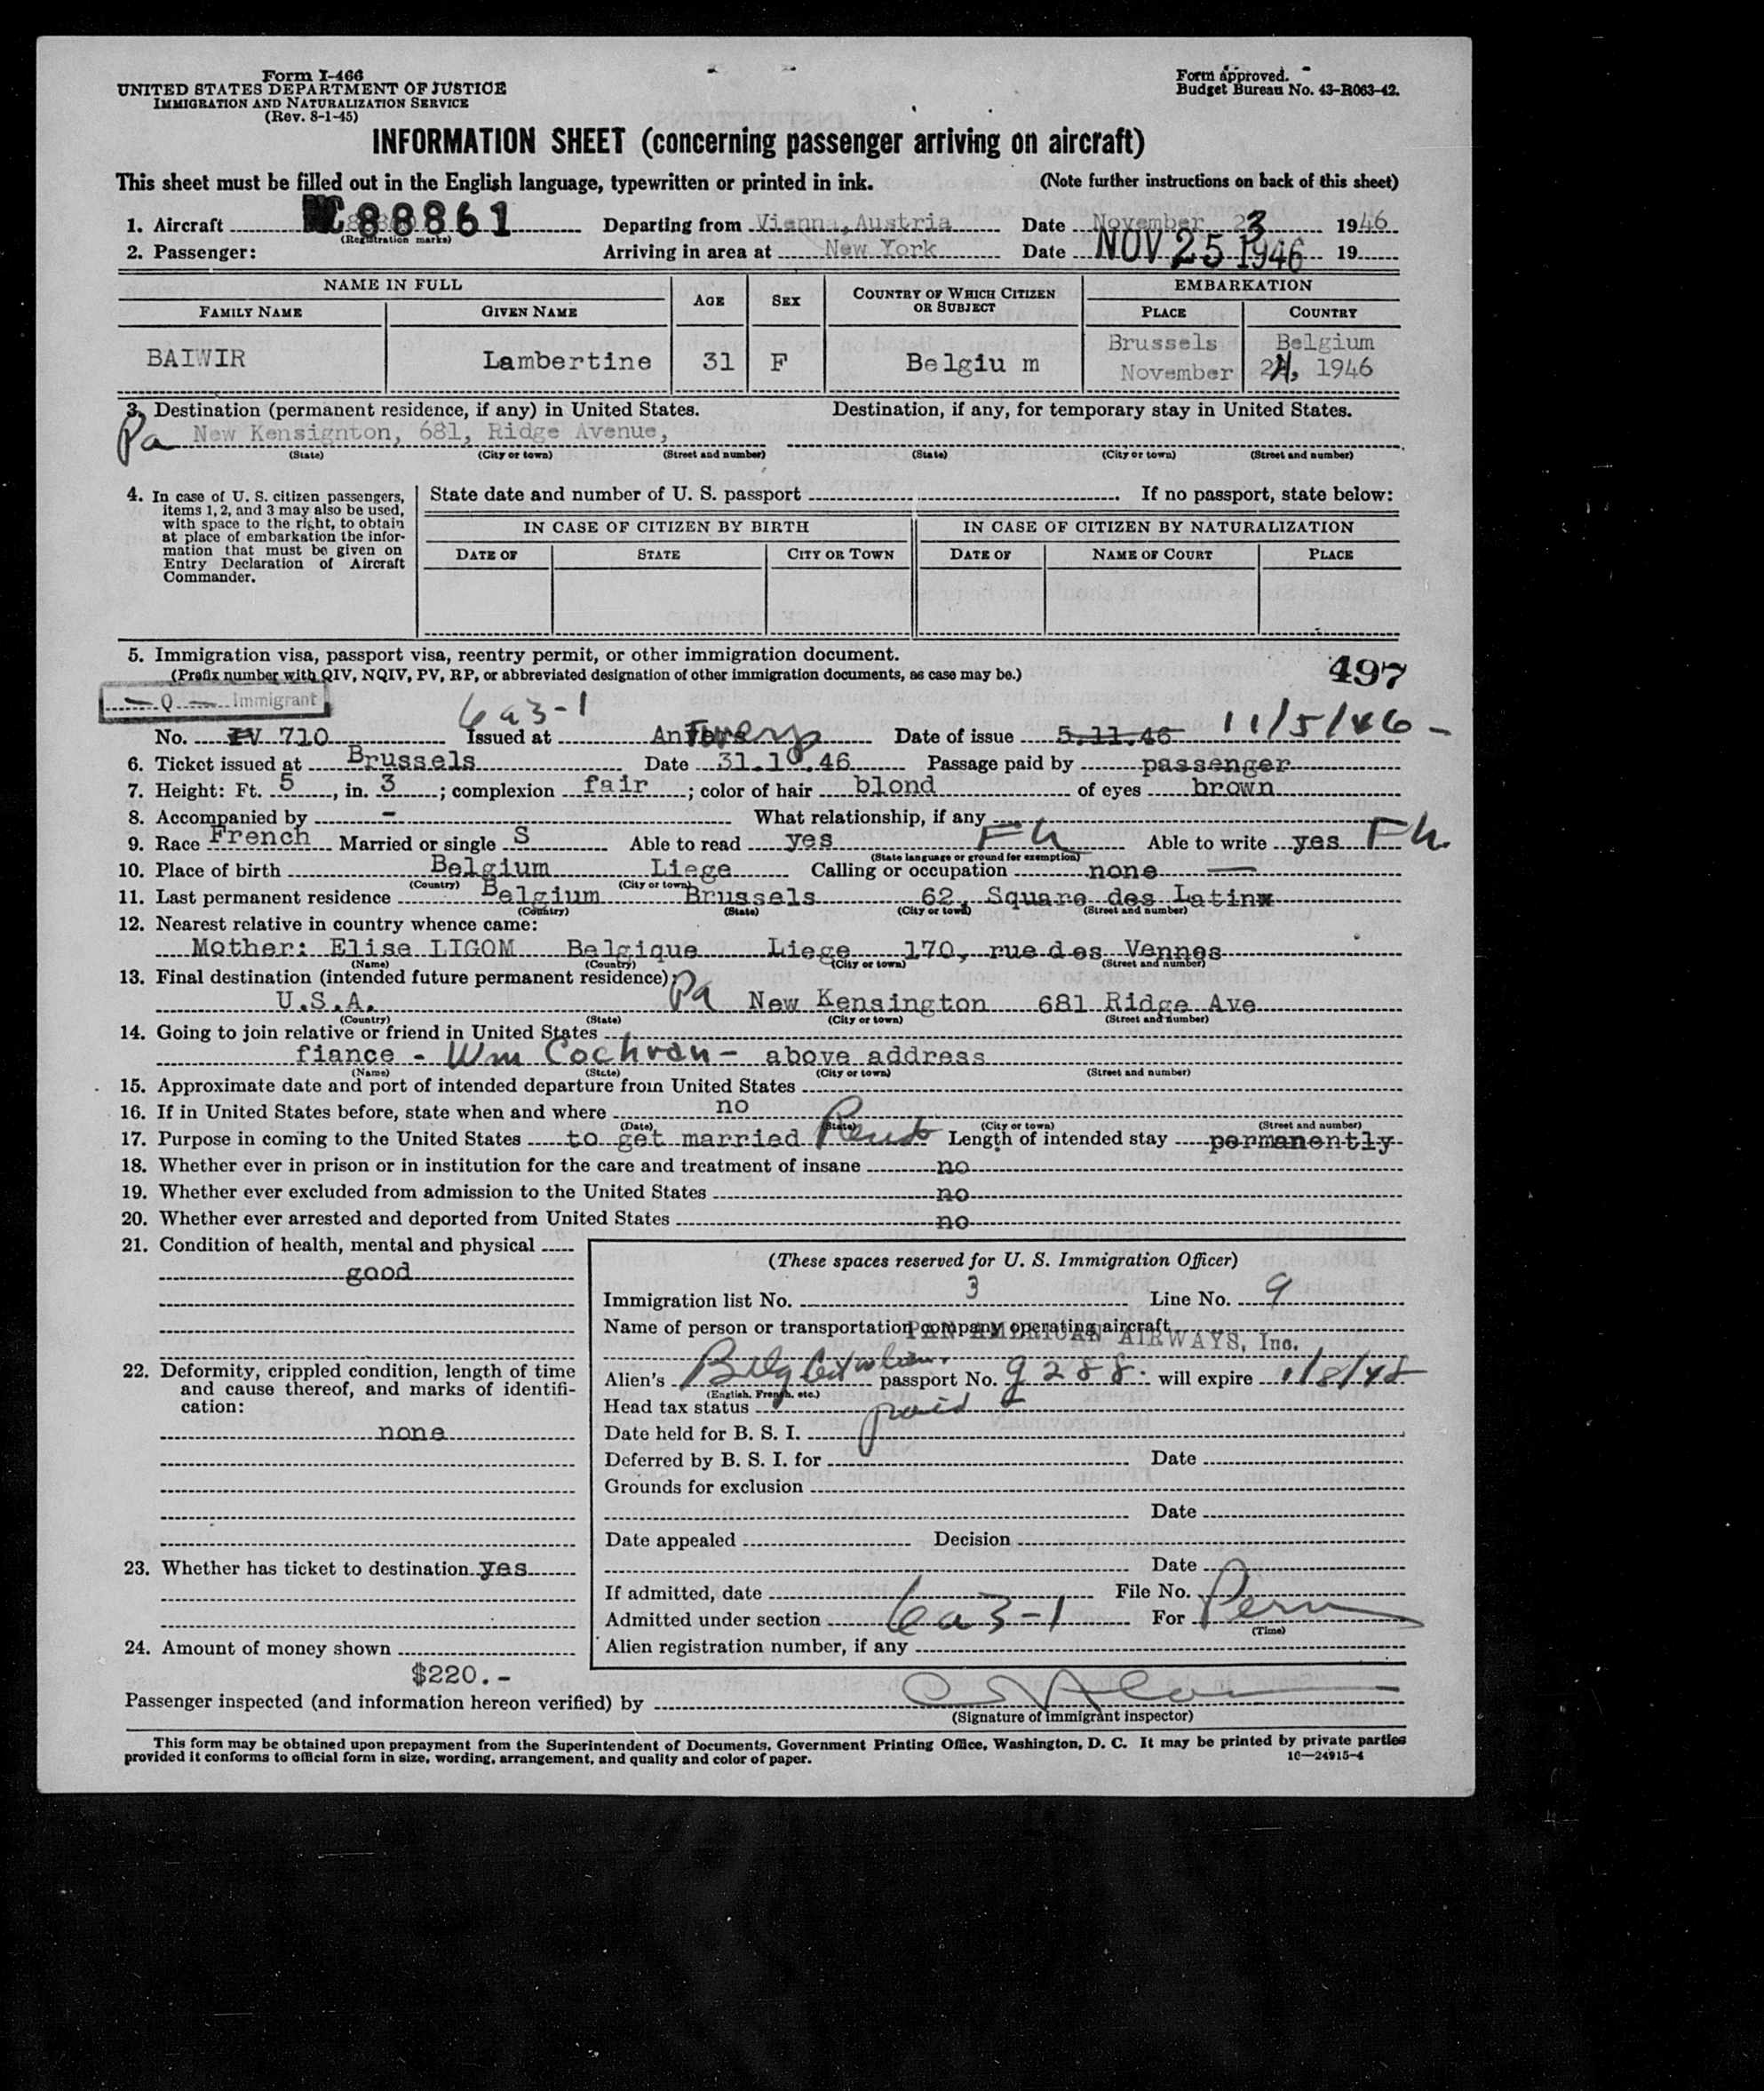 Form I-466
UNITED STATES DEPARTMENT OF JUSTICE
IMMIGRATION AND NATURALIZATION SERVICE
(Rev. 8-1-45)
Form approved.
Budget Bureau No. 43-R063-42.
INFORMATION SHEET (concerning passenger arriving on aircraft)
This sheet must be filled out in the English language, typewritten or printed in ink. (Note further instructions on back of this sheet)
1. Aircraft NC 88861 Departing from Vienna, Austria Date November 23 1946
(Registration marks)
2. Passenger: Arriving in area at New York Date NOV 25 1946 19
NAME IN FULL AGE SEX COUNTRY OF WHICH CITIZEN OR SUBJECT EMBARKATION
FAMILY NAME GIVEN NAME PLACE COUNTRY
BAIWIR Lambertine 31 F Belgiu m Brussels Belgium
November 24, 1946
3. Destination (permanent residence, if any) in United States. Destination, if any, for temporary stay in United States.
Pa New Kensignton, 681, Ridge Avenue,
(State) (City or town) (Street and number) (State) (City or town) (Street and number)
4. In case of U. S. citizen passengers, items 1, 2, and 3 may also be used, with space to the right, to obtain at place of embarkation the information that must be given on Entry Declaration of Aircraft Commander.
State date and number of U. S. passport If no passport, state below:
IN CASE OF CITIZEN BY BIRTH IN CASE OF CITIZEN BY NATURALIZATION
DATE OF STATE CITY OR TOWN DATE OF NAME OF COURT PLACE
5. Immigration visa, passport visa, reentry permit, or other immigration document.
(Prefix number with QIV, NQIV, PV, RP, or abbreviated designation of other immigration documents, as case may be.)
497
Q Immigrant
6a3-1
No. IV 710 Issued at Antwerp Date of issue 5.11.46 11/5/46 -
6. Ticket issued at Brussels Date 31.10.46 Passage paid by passenger
7. Height: Ft. 5, in. 3; complexion fair; color of hair blond of eyes brown
8. Accompanied by - What relationship, if any
9. Race French Married or single S Able to read yes Fh Able to write yes Fh
(State language or ground for exemption)
10. Place of birth Belgium Liege Calling or occupation none
(Country) (City or town)
11. Last permanent residence Belgium Brussels 62, Square des Latinx
(Country) (State) (City or town) (Street and number)
12. Nearest relative in country whence came:
Mother: Elise LIGOM Belgique Liege 170, rue des Vennes
(Name) (Country) (City or town) (Street and number)
13. Final destination (intended future permanent residence):
U.S.A. Pa New Kensington 681 Ridge Ave
(Country) (State) (City or town) (Street and number)
14. Going to join relative or friend in United States
fiance - Wm Cochran - above address
(Name) (State) (City or town) (Street and number)
15. Approximate date and port of intended departure from United States
16. If in United States before, state when and where no
(Date) (State) (City or town) (Street and number)
17. Purpose in coming to the United States to get married Length of intended stay permanently
18. Whether ever in prison or in institution for the care and treatment of insane no
19. Whether ever excluded from admission to the United States no
20. Whether ever arrested and deported from United States no
21. Condition of health, mental and physical
good
22. Deformity, crippled condition, length of time and cause thereof, and marks of identification:
none
23. Whether has ticket to destination yes
24. Amount of money shown
$220.-
(These spaces reserved for U. S. Immigration Officer)
Immigration list No. 3 Line No. 9
Name of person or transportation company operating aircraft
PAN AMERICAN AIRWAYS, Inc.
Alien's passport No. 9288 will expire 1/8/48
(English, French, etc.)
Head tax status paid
Date held for B. S. I.
Deferred by B. S. I. for Date
Grounds for exclusion
Date
Date appealed Decision
Date
If admitted, date File No.
Admitted under section 6a3-1 For Perm
(Time)
Alien registration number, if any
Passenger inspected (and information hereon verified) by
(Signature of immigrant inspector)
This form may be obtained upon prepayment from the Superintendent of Documents, Government Printing Office, Washington, D. C. It may be printed by private parties
provided it conforms to official form in size, wording, arrangement, and quality and color of paper. 16—24915-4